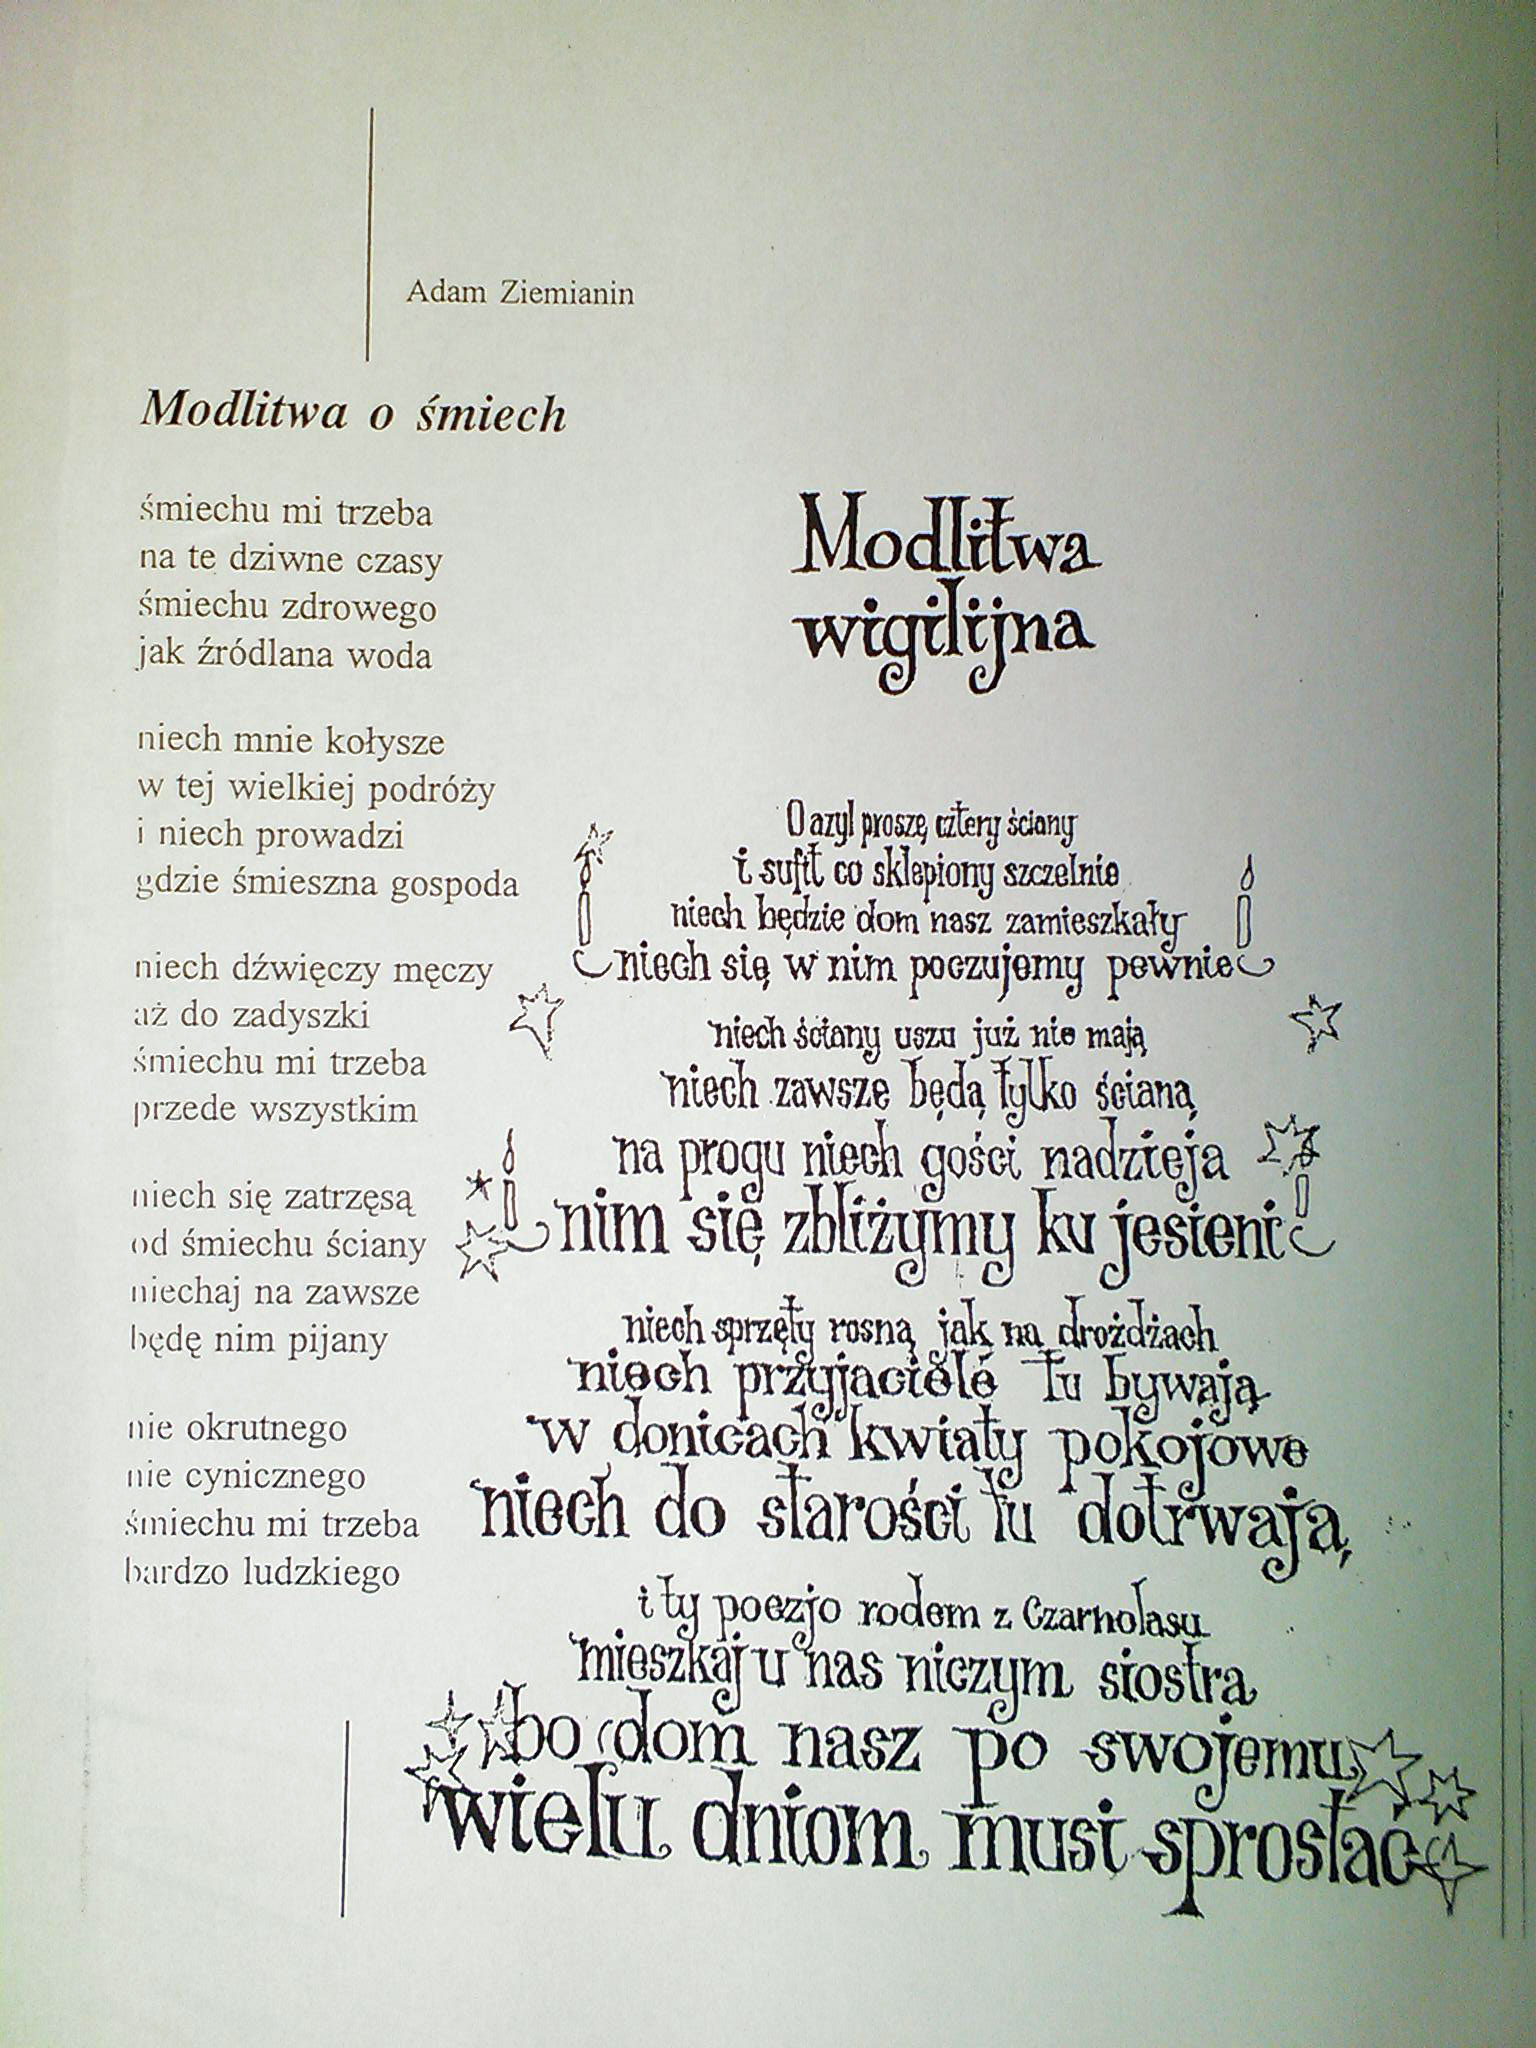 Adam Ziemianin
Modlitwa o śmiech
śmiechu mi trzeba
na te dziwne czasy
śmiechu zdrowego
jak źródlana woda
niech mnie kołysze
w tej wielkiej podróży
i niech prowadzi
gdzie śmieszna gospoda
niech dźwięczy męczy
aż do zadyszki
śmiechu mi trzeba
przede wszystkim
niech się zatrzęsą
od śmiechu ściany
niechaj na zawsze
będę nim pijany
nie okrutnego
nie cynicznego
śmiechu mi trzeba
bardzo ludzkiego
Modlitwa
wigilijna
O azyl proszę cztery ściany
i sufit co sklepiony szczelnie
niech będzie dom nasz zamieszkały
niech się w nim poczujemy pewnie
niech ściany uszu już nie mają
niech zawsze będą tylko ścianą
na progu niech gości nadzieja
nim się zbliżymy ku jesieni
niech sprzęty rosną jak na drożdżach
niech przyjaciele tu bywają
w donicach kwiaty pokojowe
niech do starości tu dotrwają
i ty poezjo rodem z Czarnolasu
mieszkaj u nas niczym siostra
bo dom nasz po swojemu
wielu dniom musi sprostać